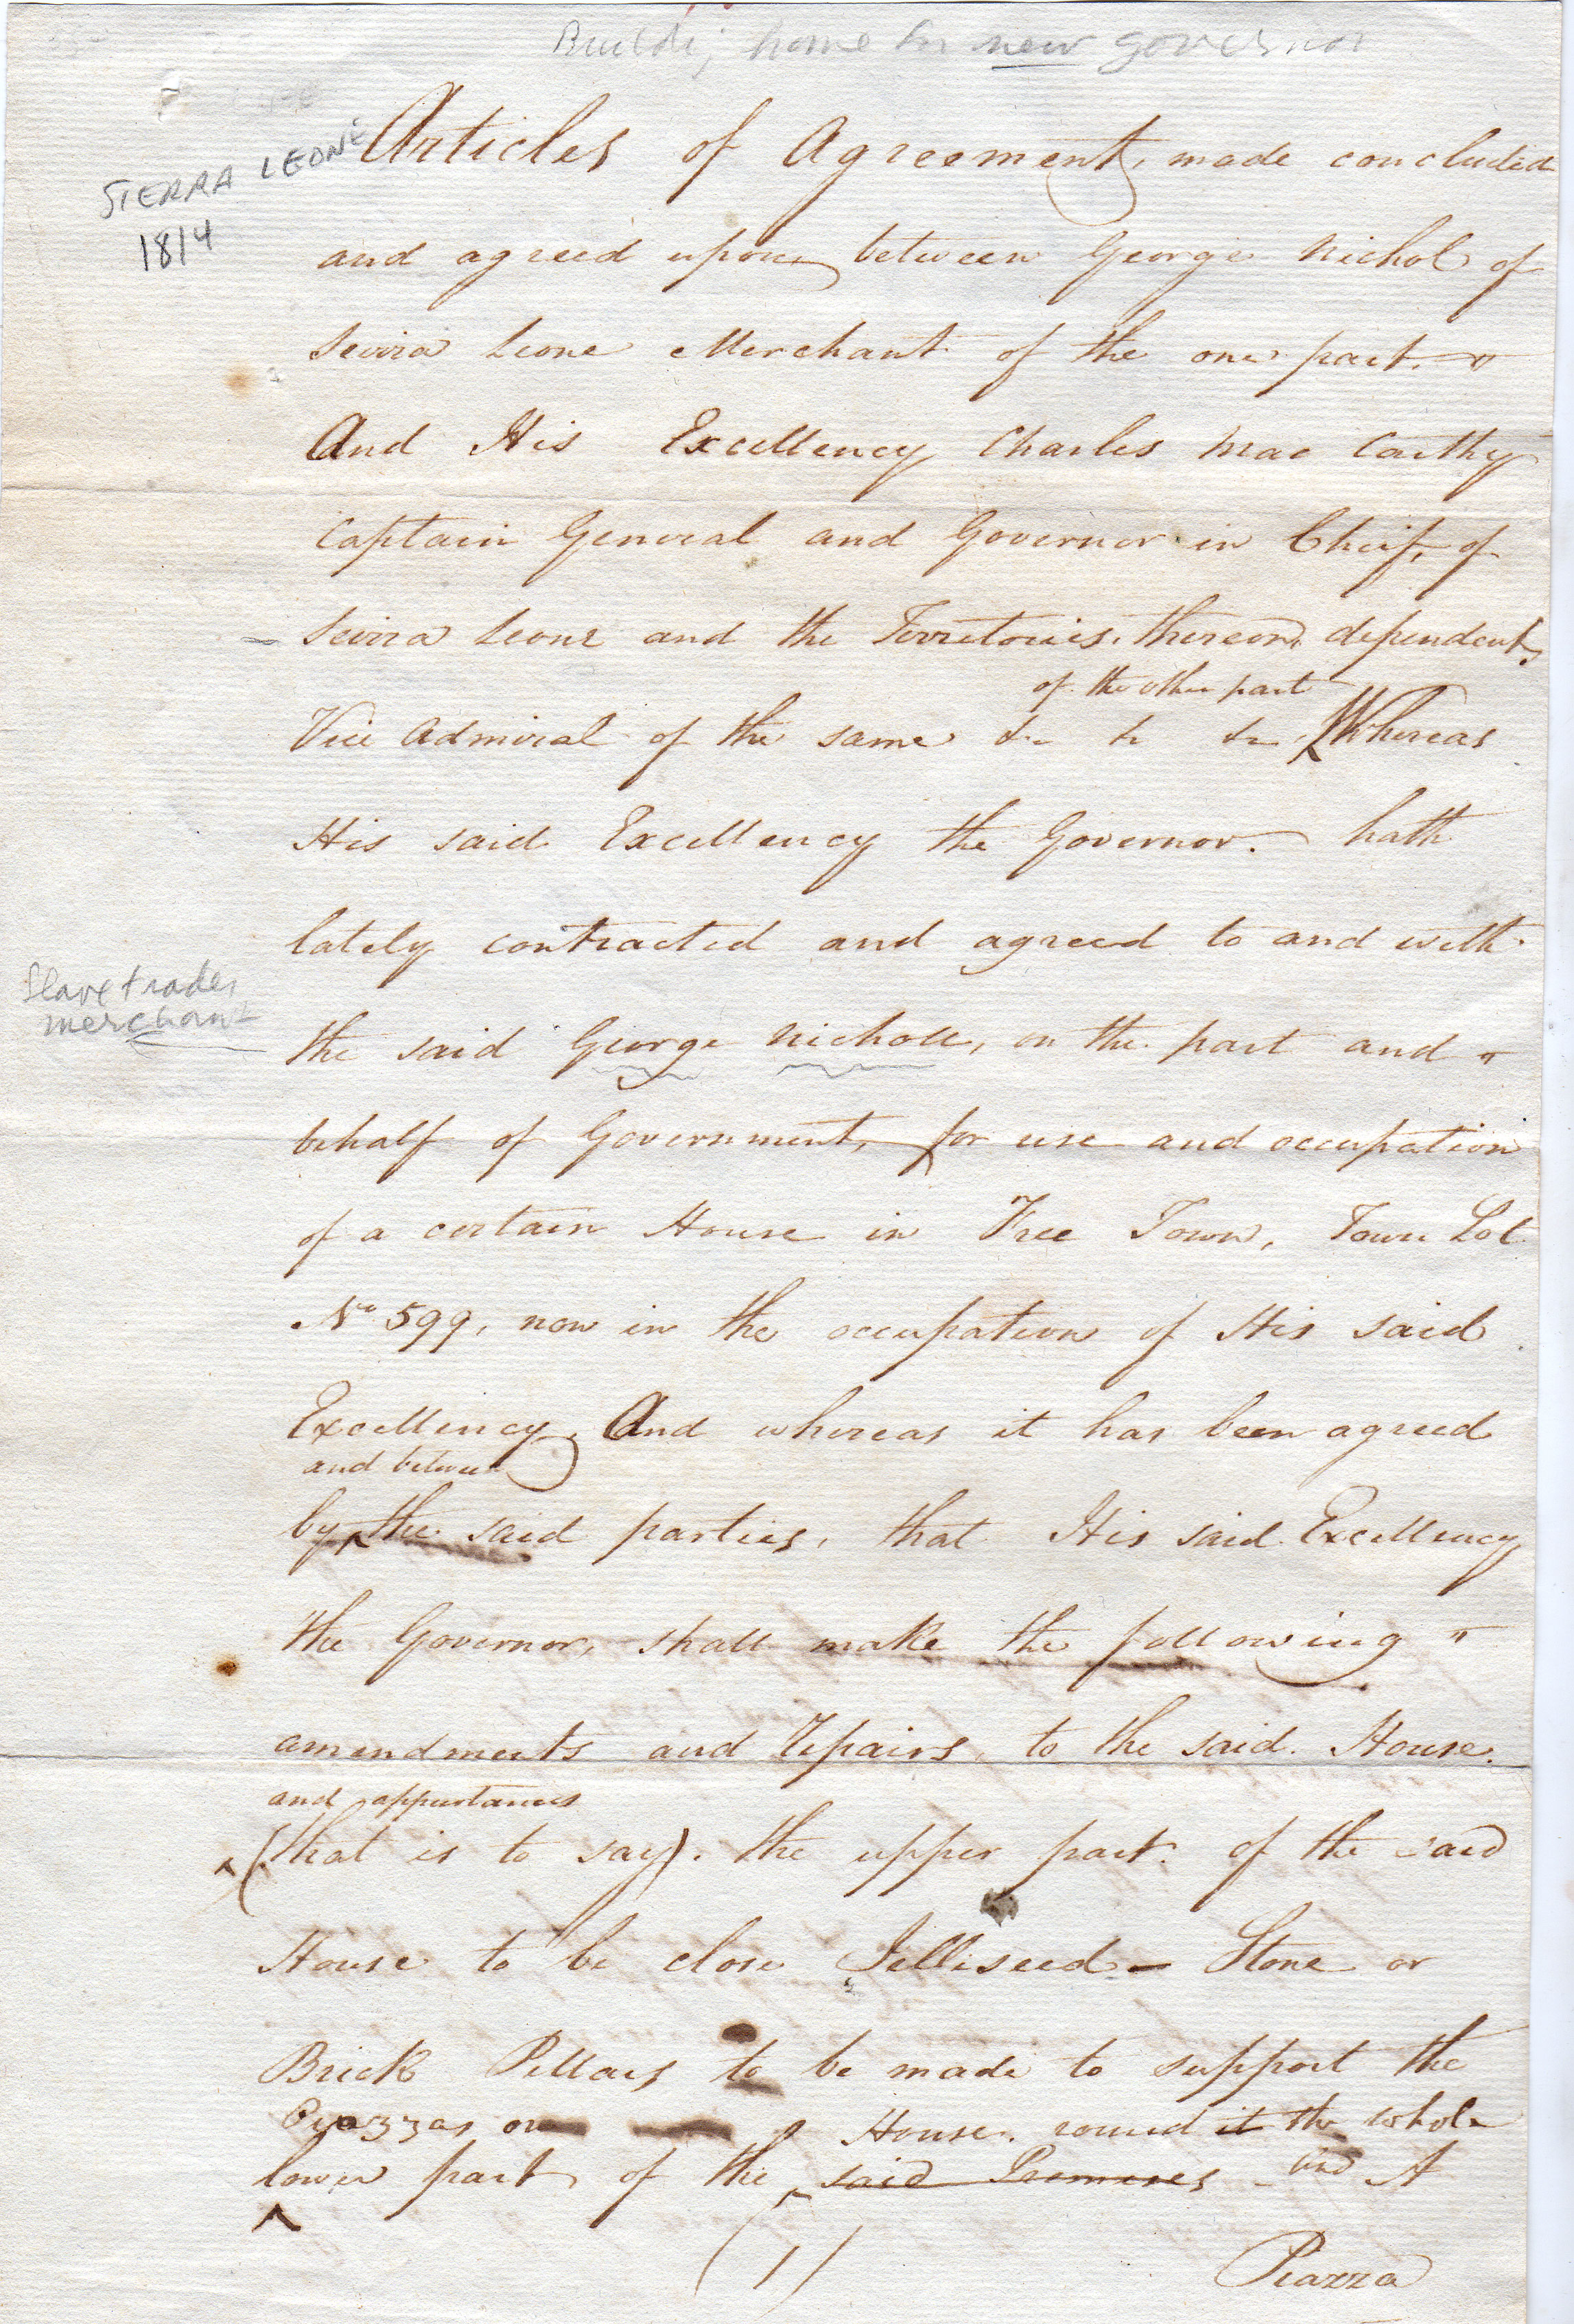 Buildi; home for new governor
SIERRA LEONE
1814
Articles of Agreement, made concluded
and agreed upon, between George Nichol of
Seirra Leone Merchant of the one part. "
And His Excellency Charles Mac Carthy
Captain General and Governor in Cheif, of
Seirra Leone and the Territories, thereon, dependent,
of the other part
Vice Admiral of the same &c &c &c, Whereas
His said Excellency the Governor. hath
lately contracted and agreed to and with
Slave trader
merchant
the said George Nicholl, on the part and "
behalf of Government, for use and occupation
of a certain House in Free Town, Town Lot
No 599, now in the occupation of His said
Excellency. And whereas it has been agreed
and between
by the said parties, that His said Excellency
the Governor, shall make the following "
amendments and Repairs, to the said. House.
and appurtances
(that is to say). the upper part. of the said
House to be close Jelliseed - Stone or
Brick Pillars to be made to support the
Piazzas on House. round it the whole
lower part of the said Premises and A
(1)
Piazza